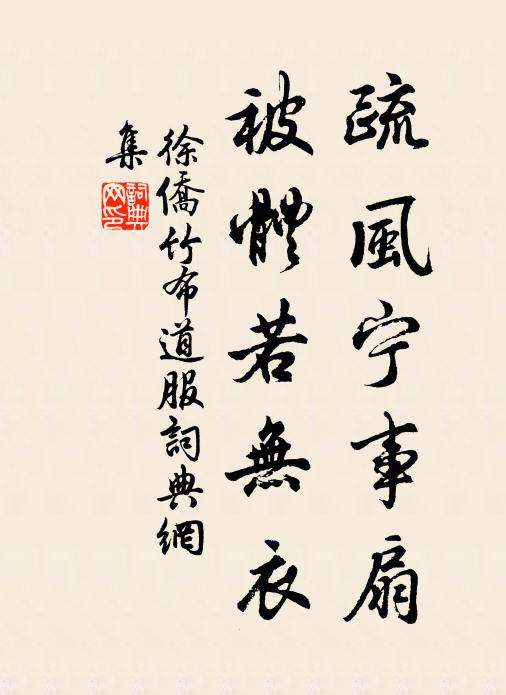 疏風宁事扇
被體若無衣
徐僑竹布道服詞典網
集
詞典网印